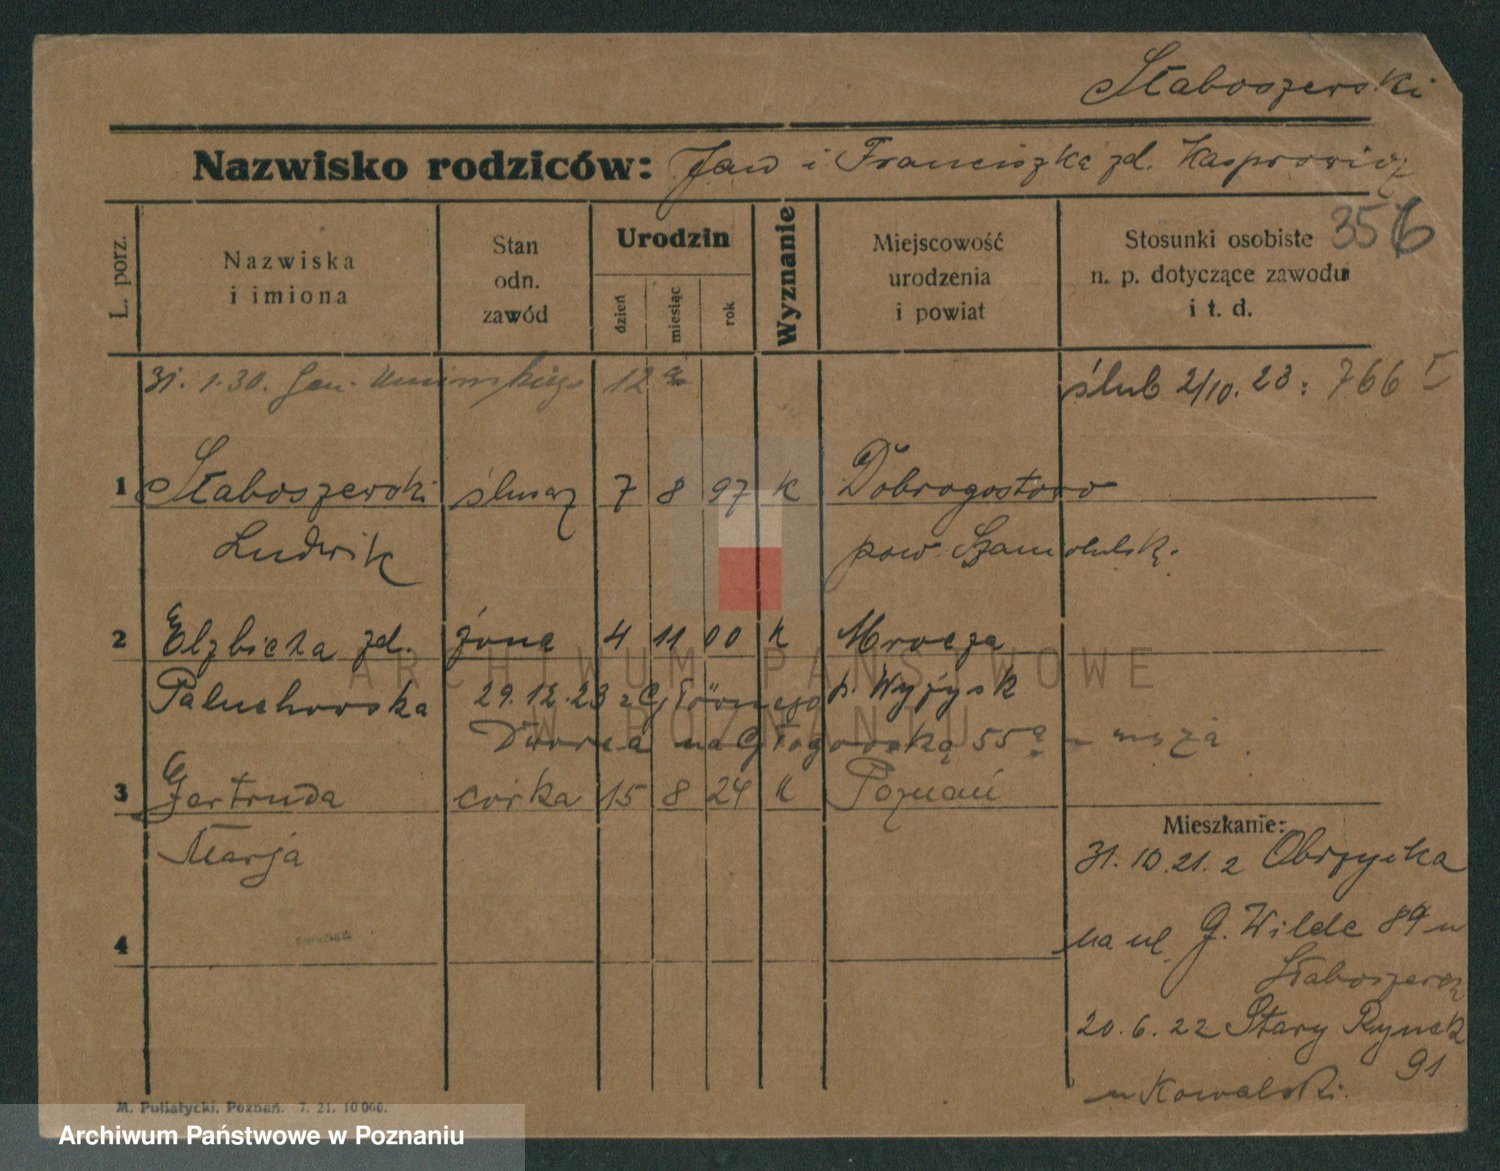 Słaboszewski
Nazwisko rodziców: Jan i Franciszka zd. Kasprowicz
356
L. porz.
Nazwiska i imiona
Stan odn. zawód
Urodzin
dzień
miesiąc
rok
Wyznanie
Miejscowość urodzenia i powiat
Stosunki osobiste n. p. dotyczące zawodu i t. d.
31. 1. 30. Gen. Umińskiego 12a
ślub 2/10. 23: 766 I
1 Słaboszewski ślusarz 7 8 97 k Dobrogostowo
Ludwik pow. Szamotulsk.
2 Elzbieta zd. żona 4 11 00 k Mrocza
Paluchowska 29. 12. 23 z Głównego p. Wyżysk
Dworca na Głogowską 55a męża
3 Gertruda córka 15 8 24 k Poznań
Marja
Mieszkanie:
31. 10. 21. z Obrzycka
na ul. G. Wilde 89 u
20. 6. 22 Stary Rynek
91
u Kowalski.
4
ARCHIWUM PAŃSTWOWE
W POZNANIU
M. Putiatycki, Poznań. 7. 21. 10000.
Archiwum Państwowe w Poznaniu